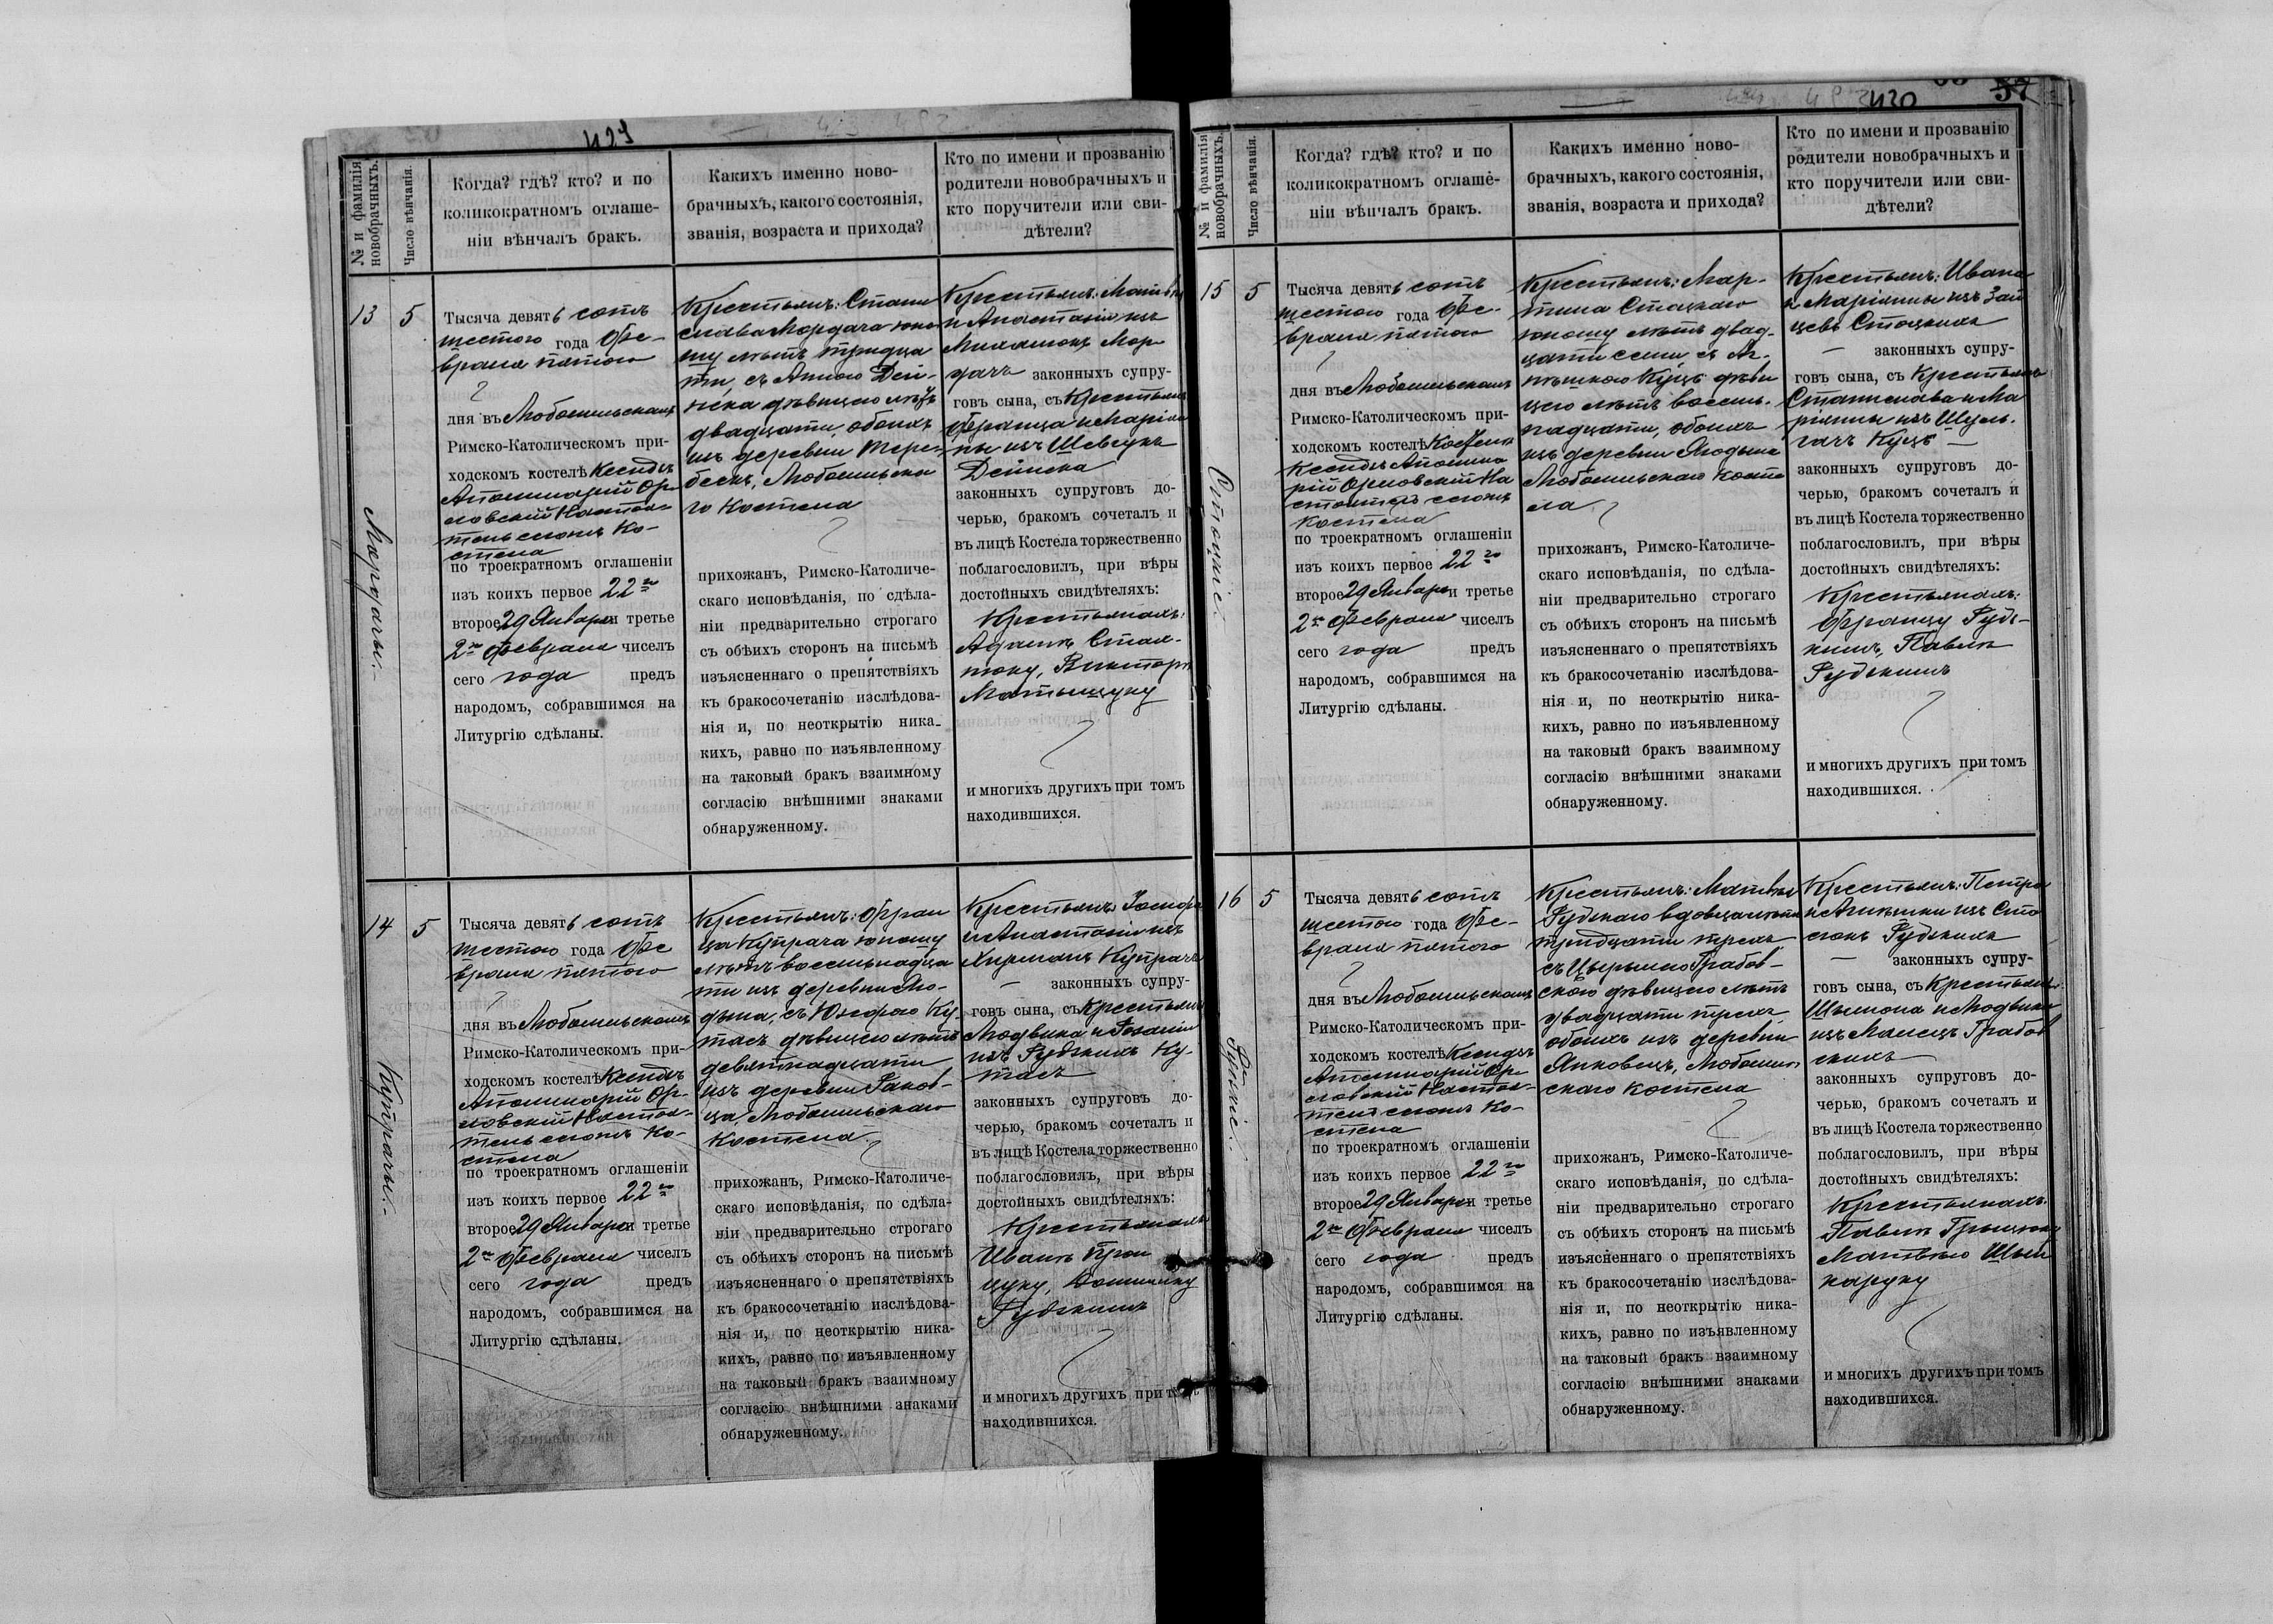 429
№ и фамилія новобрачныхъ.
Число вѣнчанія.
Когда? гдѣ? кто? и по
коликократномъ оглаше-
ніи вѣнчалъ бракъ.
Какихъ именно ново-
брачныхъ, какого состоянія,
званія, возраста и прихода?
Кто по имени и прозванію
родители новобрачныхъ и
кто поручители или сви-
дѣтели?
13
5
Мордачи.
Тысяча девять сотъ
шестого года Фе-
враля пятого
дня въ Любошильскомъ
Римско-Католическомъ при-
ходскомъ костелѣ Ксендзъ
Аполинарій Ор-
ловскій Настоя-
тель сего Ко-
стела
по троекратномъ оглашеніи
изъ коихъ первое 22го
второе 29 Января и третье
2го Февраля чиселъ
сего года предъ
народомъ, собравшимся на
Литургію сдѣланы.
Крестьянъ: Стани
слава Мордача юно
шу лѣтъ тридца
ти, съ Анною Дей-
нека дѣвицею лѣтъ
двадцати, обоихъ
изъ деревни Тере-
бежъ, Любошильска
го Костела
прихожанъ, Римско-Католиче-
скаго исповѣданія, по сдѣла-
ніи предварительно строгаго
съ обѣихъ сторонъ на письмѣ
изъясненнаго о препятствіяхъ
къ бракосочетанію изслѣдова-
нія и, по неоткрытію ника-
кихъ, равно по изъявленному
на таковый бракъ взаимному
согласію внѣшними знаками
обнаруженному.
Крестьянъ: Матвѣя
и Анастасіи изъ
Михалюкъ Мор
дачъ законныхъ супру-
говъ сына, съ Крестьянъ
Франца и Маріан
ны изъ Шевчукъ
Дейнека
законныхъ супруговъ до-
черью, бракомъ сочеталъ и
въ лицѣ Костела торжественно
поблагословилъ, при вѣры
достойныхъ свидѣтеляхъ:
Крестьянахъ:
Адамѣ
Викторѣ
и многихъ другихъ при томъ
находившихся.
14
5
Купрачи.
Тысяча девять сотъ
шестого года Фе
враля пятого
дня въ Любошильскомъ
Римско-Католическомъ при-
ходскомъ костелѣ Ксендзъ
Аполинарій Ор-
ловскій Настоя-
тель сего Ко-
стела
по троекратномъ оглашеніи
изъ коихъ первое 22го
второе 29 Января и третье
2го Февраля чиселъ
сего года предъ
народомъ, собравшимся на
Литургію сдѣланы.
Крестьянъ: Фран
ца Купрача юношу
лѣтъ восемнадца
ти изъ деревни Лю-
дына, съ Юзефою Ку
тасъ дѣвицею лѣтъ
девятнадцати
изъ деревни
Любошильскаго
Костела
прихожанъ, Римско-Католиче-
скаго исповѣданія, по сдѣла-
ніи предварительно строгаго
съ обѣихъ сторонъ на письмѣ
изъясненнаго о препятствіяхъ
къ бракосочетанію изслѣдова-
нія и, по неоткрытію ника-
кихъ, равно по изъявленному
на таковый бракъ взаимному
согласію внѣшними знаками
обнаруженному.
Крестьянъ: Іосифа
и Анастасіи изъ
Купрачъ
законныхъ супру-
говъ сына, съ Крестьянъ
Людвика и Розаліи
изъ Рудзкихъ Ку-
тасъ
законныхъ супруговъ до-
черью, бракомъ сочеталъ и
въ лицѣ Костела торжественно
поблагословилъ, при вѣры
достойныхъ свидѣтеляхъ:
Крестьянахъ
Иванѣ
Доминику
Рудзкимъ
и многихъ другихъ при томъ
находившихся.
430
57
№ и фамилія новобрачныхъ.
Число вѣнчанія.
Когда? гдѣ? кто? и по
коликократномъ оглаше-
ніи вѣнчалъ бракъ.
Какихъ именно ново-
брачныхъ, какого состоянія,
званія, возраста и прихода?
Кто по имени и прозванію
родители новобрачныхъ и
кто поручители или сви-
дѣтели?
15
5
Стоцкіе.
Тысяча девять сотъ
шестого года Фе-
враля пятого
дня въ Любошильскомъ
Римско-Католическомъ при-
ходскомъ костелѣ
Ксендзъ Аполина
рій Орловскій На
стоятель сего
Костела
по троекратномъ оглашеніи
изъ коихъ первое 22го
второе 29 Января и третье
2го Февраля чиселъ
сего года предъ
народомъ, собравшимся на
Литургію сдѣланы.
Крестьянъ: Мар-
тина Стоцкаго
юношу лѣтъ двад-
цати семи, съ Аг-
нѣшкою Куцъ дѣви
цею лѣтъ восем-
надцати, обоихъ
изъ деревни Людына
Любошильскаго Косте
ла
прихожанъ, Римско-Католиче-
скаго исповѣданія, по сдѣла-
ніи предварительно строгаго
съ обѣихъ сторонъ на письмѣ
изъясненнаго о препятствіяхъ
къ бракосочетанію изслѣдова-
нія и, по неоткрытію ника-
кихъ, равно по изъявленному
на таковый бракъ взаимному
согласію внѣшними знаками
обнаруженному.
Крестьянъ: Ивана
и Маріанны изъ Зай
цевъ Стоцкихъ
законныхъ супру-
говъ сына, съ Крестьянъ
Станислава и Ма
ріанны изъ Шуль-
гачъ Куцъ
законныхъ супруговъ до-
черью, бракомъ сочеталъ и
въ лицѣ Костела торжественно
поблагословилъ, при вѣры
достойныхъ свидѣтеляхъ:
Крестьянахъ:
Францу Рудз-
кимъ, Павлѣ
Рудзкимъ
и многихъ другихъ при томъ
находившихся.
16
5
Рудзкіе.
Тысяча девять сотъ
шестого года Фе-
враля пятого
дня въ Любошильскомъ
Римско-Католическомъ при-
ходскомъ костелѣ Ксендзъ
Аполинарій Ор
ловскій Настоя-
тель сего Ко-
стела
по троекратномъ оглашеніи
изъ коихъ первое 22го
второе 29 Января и третье
2го Февраля чиселъ
сего года предъ
народомъ, собравшимся на
Литургію сдѣланы.
Крестьянъ: Матвѣя
Рудзкаго вдовца лѣтъ
тридцати трехъ
съ Грабов-
скою дѣвицею лѣтъ
двадцати трехъ
обоихъ изъ деревни
Янковецъ, Любошиль
скаго Костела
прихожанъ, Римско-Католиче-
скаго исповѣданія, по сдѣла-
ніи предварительно строгаго
съ обѣихъ сторонъ на письмѣ
изъясненнаго о препятствіяхъ
къ бракосочетанію изслѣдова-
нія и, по неоткрытію ника-
кихъ, равно по изъявленному
на таковый бракъ взаимному
согласію внѣшними знаками
обнаруженному.
Крестьянъ: Петра
и Агнѣшки изъ
Рудзкихъ
законныхъ супру-
говъ сына, съ Крестьянъ
Шимона и Людвики
изъ Грабов
скихъ
законныхъ супруговъ до-
черью, бракомъ сочеталъ и
въ лицѣ Костела торжественно
поблагословилъ, при вѣры
достойныхъ свидѣтеляхъ:
Крестьянахъ:
Павлѣ
Матвѣю
и многихъ другихъ при томъ
находившихся.